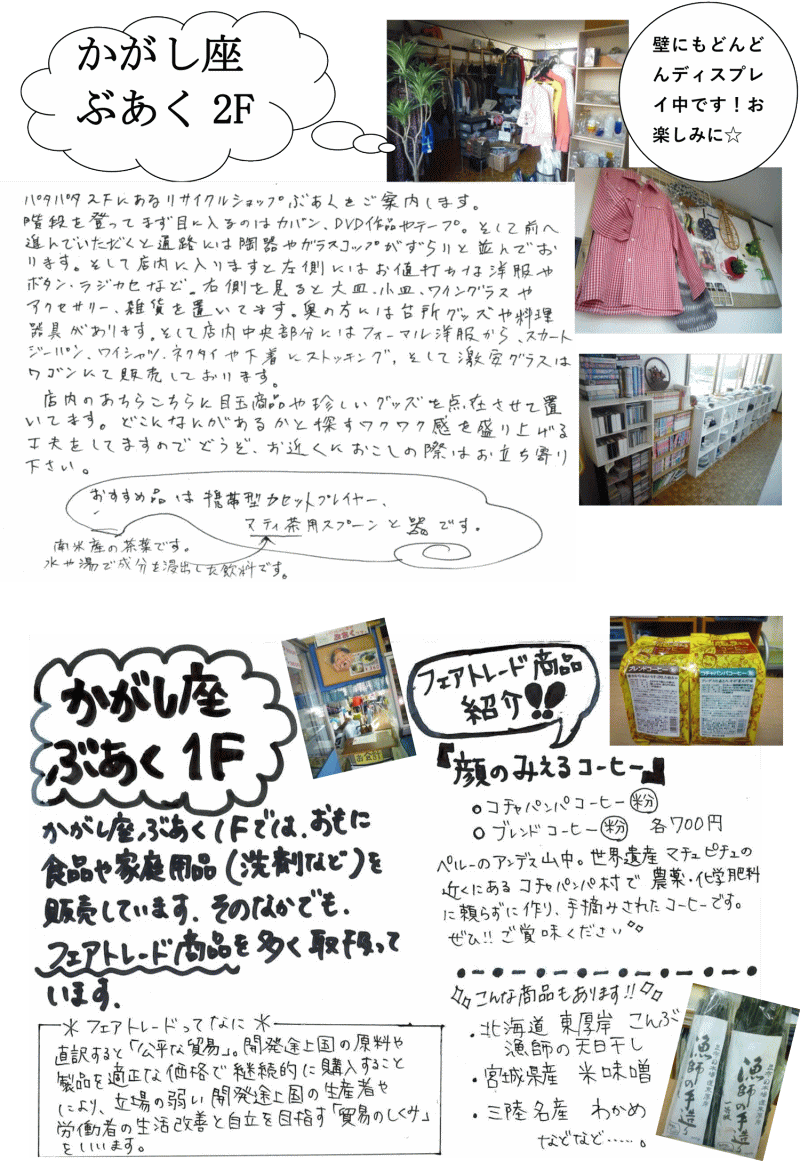 かがし座
ぶあく 2F
壁にもどんど
んディスプレ
イ中です！お
楽しみに☆
パタパタ2Fにあるリサイクルショップぶあくをご案内します。
階段を登ってまず目に入るのはカバン、DVD作品やテープ。そして前へ
進んでいただくと通路には陶器やガラスコップがずらりと並んでお
ります。そして店内に入りますと左側にはお値打ちな洋服や
ボタン、ラジカセなど。右側を見ると大皿、小皿、ワイングラスや
アクセサリー、雑貨を置いてます。奥の方には台所グッズや料理
器具があります。そして店内中央部分にはフォーマル洋服から、スカート
ジーパン、ワイシャツ、ネクタイや下着にストッキング, そして激安グラスは
ワゴンにて販売しております。
店内のあちらこちらに目玉商品や珍しいグッズを点在させて置
いてます。どこになにがあるかと探すワクワク感を盛り上げる
工夫をしてますのでどうぞ、お近くにおこしの際はお立ち寄り
下さい。
おすすめ品は携帯型カセットプレイヤー、
マティ茶用スプーンと器です。
南米産の茶葉です。
水や湯で成分を浸出した飲料です。
かがし座
ぶあく 1F
かがし座ぶあく1Fでは、おもに
食品や家庭用品(洗剤など)を
販売しています。そのなかでも、
フェアトレード商品を多く取り扱って
います。
＊フェアトレードってなに＊
直訳すると「公平な貿易」。開発途上国の原料や
製品を適正な価格で継続的に購入すること
により、立場の弱い開発途上国の生産者や
労働者の生活改善と自立を目指す「貿易のしくみ」
をいいます。
フェアトレード商品
紹介!!
『顔のみえるコーヒー』
○コチャパンパコーヒー(粉)
○ブレンドコーヒー(粉) 各700円
ペルーのアンデス山中。世界遺産マチュピチュの
近くにあるコチャパンパ村で 農薬・化学肥料
に頼らずに作り、手摘みされたコーヒーです。
ぜひ!! ご賞味ください
こんな商品もあります!!
・北海道 東厚岸 こんぶ
漁師の天日干し
・宮城県産 米味噌
・三陸名産 わかめ
などなど……。
ブレンドコーヒー
コチャパンパコーヒー
漁師の手造り
漁師の手造り